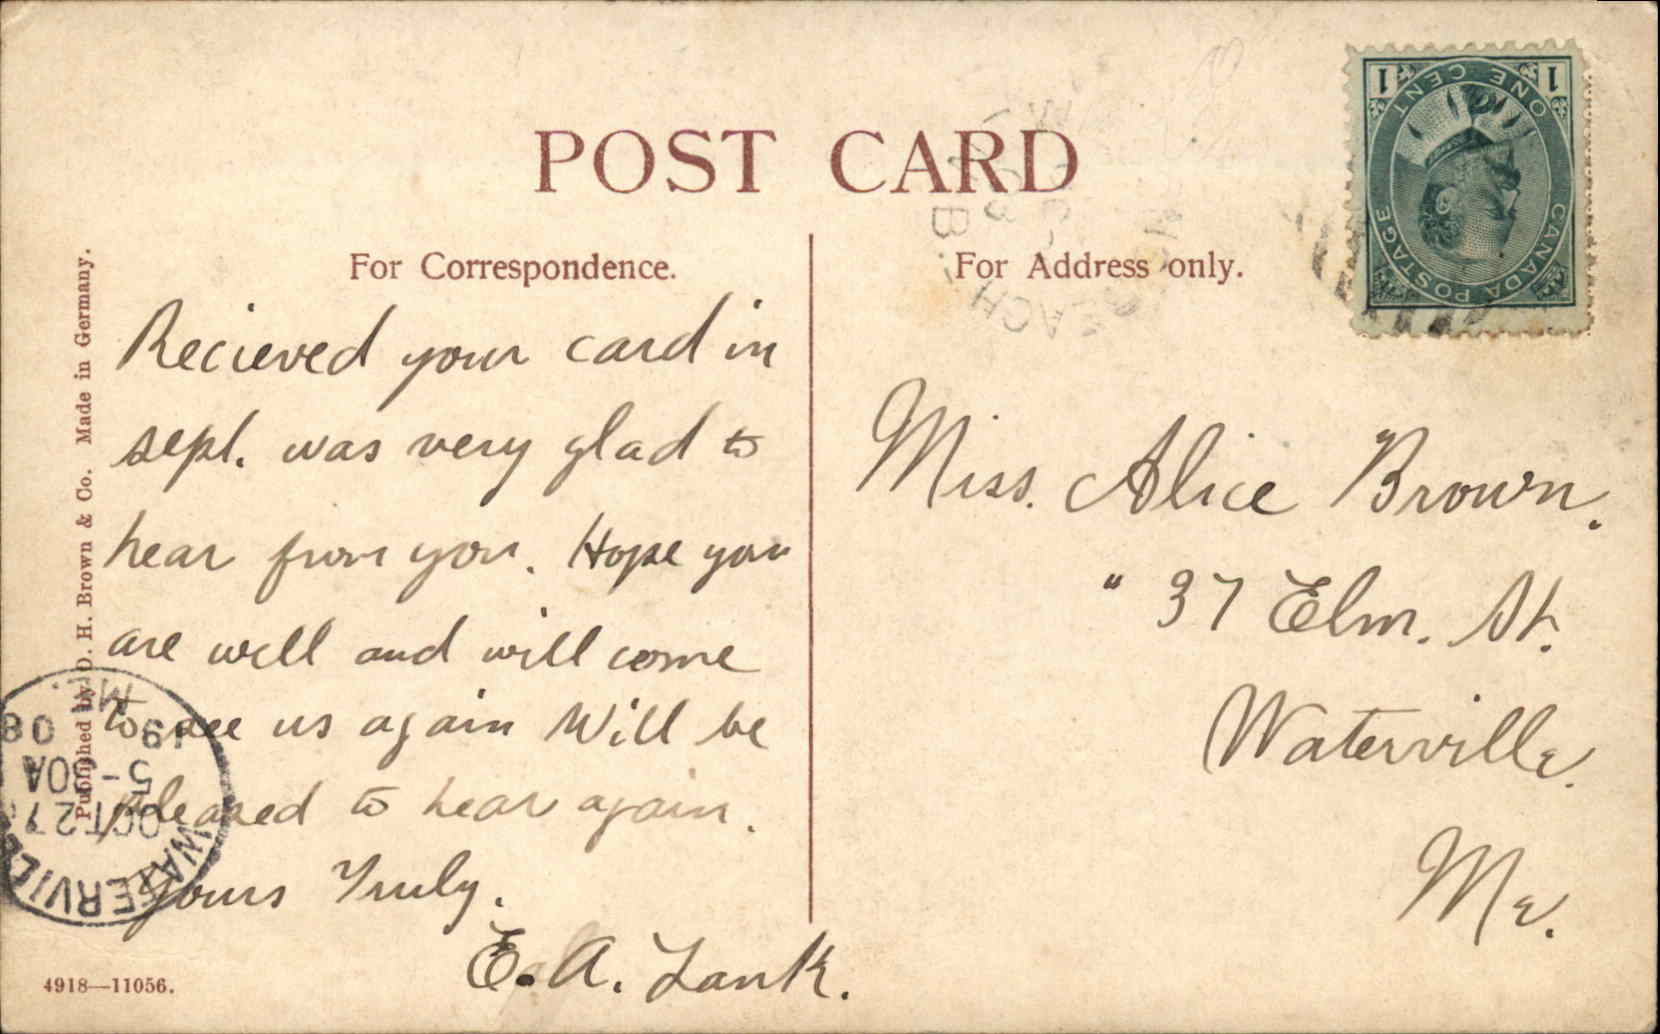 POST CARD
For Correspondence.
For Address only.
Recieved your card in
sept. was very glad to
hear from you. Hope you
are well and will come
to see us again Will be
pleased to hear again.
Yours Truly.
E. A. Lank.
Miss. Alice Brown.
" 37 Elm. St.
Waterville.
Me.
Published by D. H. Brown & Co. Made in Germany.
4918—11056.
CANADA POSTAGE
ONE CENT
1 1
WATERVILLE
OCT 27
5-30A
19 08
ME.
BEACH
N.B.